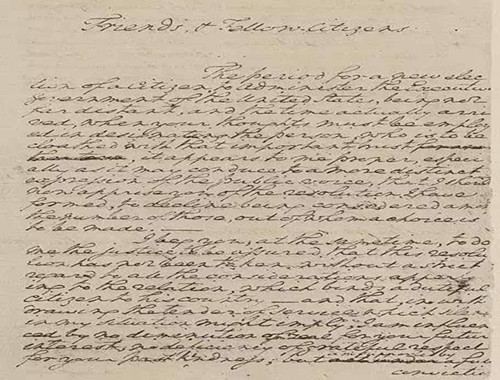 Friends, & Fellow-Citizens
The period for a new elec-
tion of a Citizen, to administer the Executive
government of the United States, being not
far distant, and the time actually arri-
ved, when your thoughts must be employ-
ed in designating the person, who is to be
cloathed with that important trust,
, it appears to me proper, especi-
ally as it may conduce to a more distinct
expression of the public voice, that I should
now apprise you of the resolution I have
formed, to decline being considered among
the number of those, out of whom a choice is
to be made.
I beg you, at the same time, to do
me the justice to be assured, that this resolu-
tion has not been taken, without a strict
regard to all the considerations appertain-
ing to the relation, which binds a dutiful
citizen to his country — and that, in with-
drawing the tender of service which silence
in my situation might imply, I am influen-
ced by no diminution of zeal for your future
interest, no deficiency of grateful respect
for your past kindness; but by a full
convictio